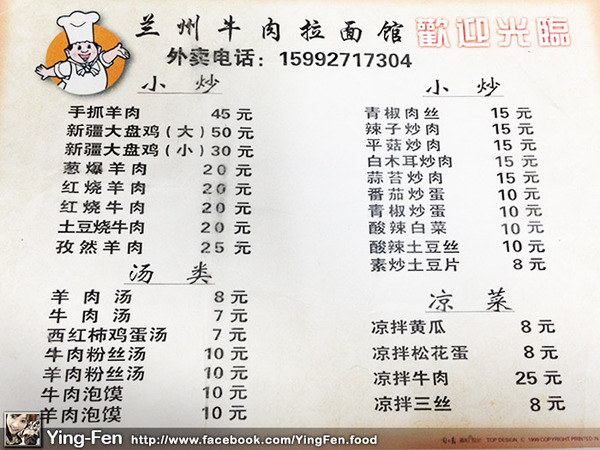 兰州牛肉拉面馆 歡迎光臨
外卖电话：15992717304
小 炒
手抓羊肉 45 元
新疆大盘鸡（大）50 元
新疆大盘鸡（小）30 元
葱爆羊肉 20 元
红烧羊肉 20 元
红烧牛肉 20 元
土豆烧牛肉 20 元
孜然羊肉 25 元
汤 类
羊肉汤 8 元
牛肉汤 7 元
西红柿鸡蛋汤 7 元
牛肉粉丝汤 10 元
羊肉粉丝汤 10 元
牛肉泡馍 10 元
羊肉泡馍 10 元
小 炒
青椒肉丝 15 元
辣子炒肉 15 元
平菇炒肉 15 元
白木耳炒肉 15 元
蒜苔炒肉 15 元
番茄炒蛋 10 元
青椒炒蛋 10 元
酸辣白菜 10 元
酸辣土豆丝 10 元
素炒土豆片 8 元
凉 菜
凉拌黄瓜 8 元
凉拌松花蛋 8 元
凉拌牛肉 25 元
凉拌三丝 8 元
TOP DESIGN, 1999 COPYRIGHT PRINTED
Ying-Fen http://www.facebook.com/YingFen.food